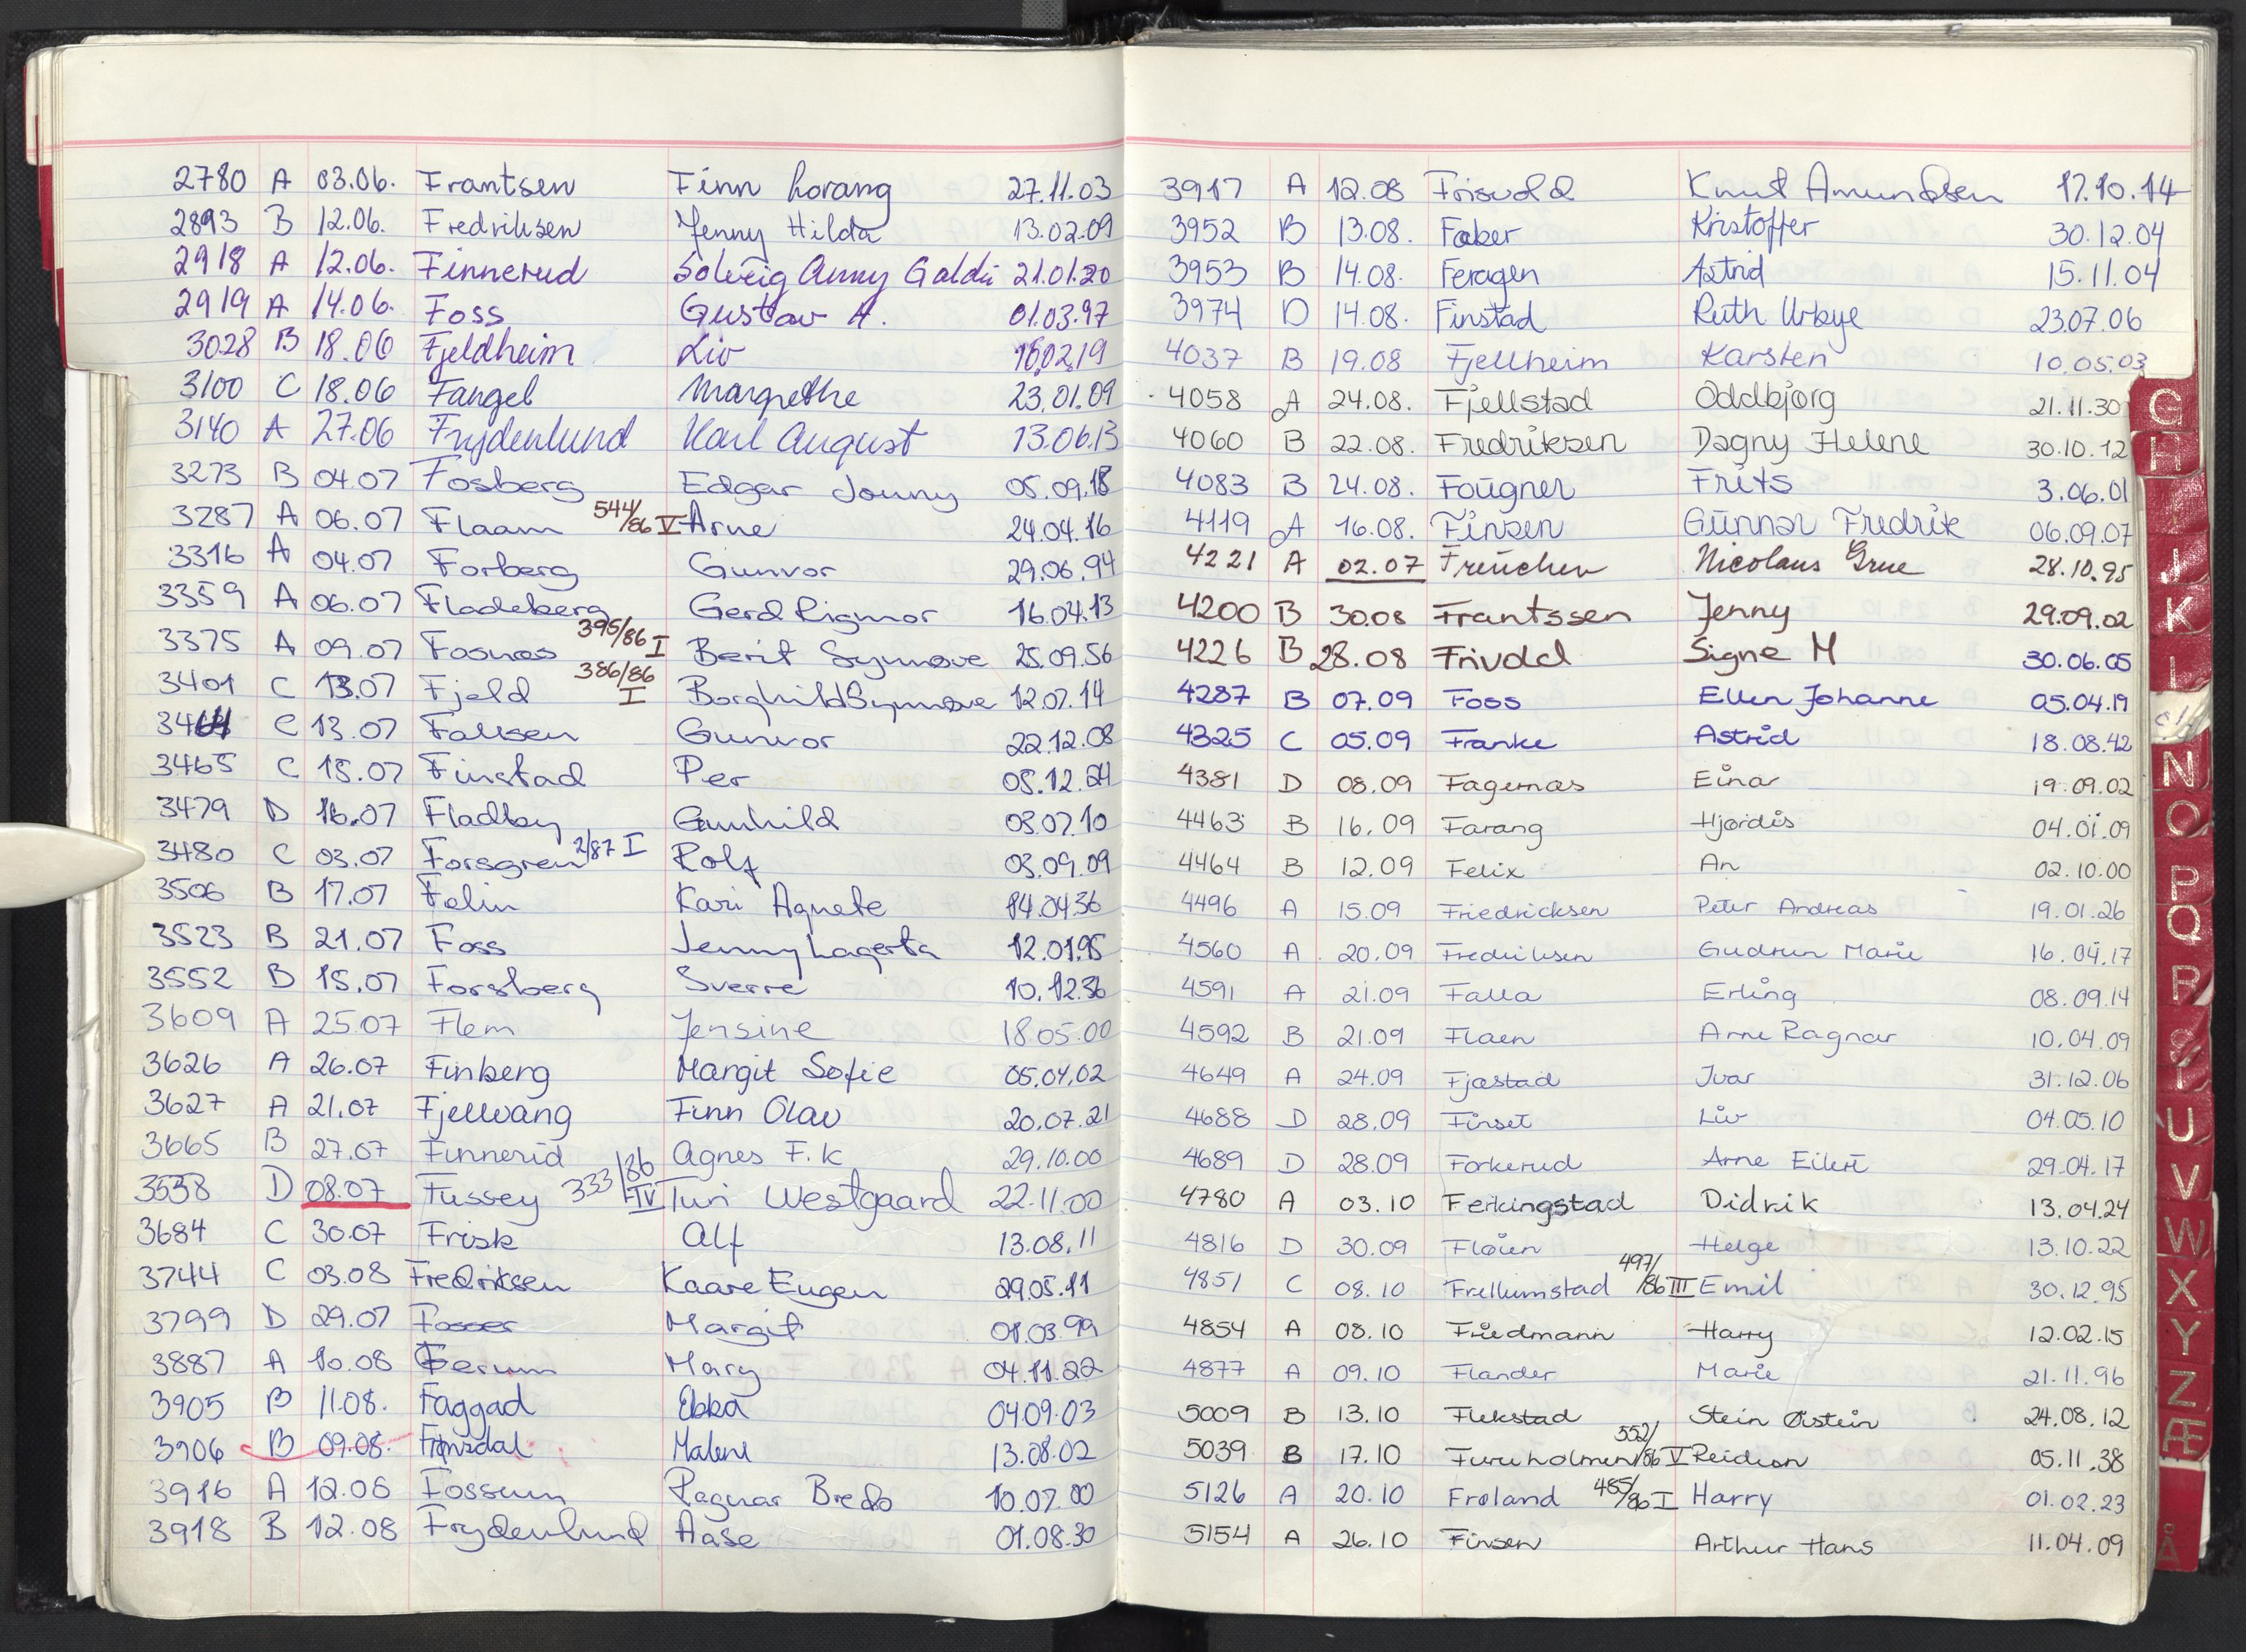 2780 A 03.06. Frantsen Finn Lorang 27.11.03
2893 B 12.06. Fredriksen Jenny Hilda 13.02.09
2918 A 12.06. Finnerud Solveig Anny Galdis 21.01.20
2919 A 14.06. Foss Gustav A. 01.03.97
3028 B 18.06 Fjeldheim Liv 16.02.19
3100 C 18.06 Fangel Margrethe 23.01.09
3140 A 27.06 Frydenlund Karl August 13.06.13
3273 B 04.07 Fosberg Edgar Jonny 05.09.18
3287 A 06.07 Flaam 544/86 V Arne 24.04.16
3316 A 04.07 Forberg Gunvor 29.06.94
3359 A 06.07 Fladeberg Gerd Rigmor 16.04.13
3375 A 09.07 Fosnæs 395/86 I Berit Synnøve 25.09.56
3401 C 13.07 Fjeld 386/86 I Borghild Synnøve 12.07.14
3464 C 13.07 Falksen Gunvor 22.12.08
3465 C 15.07 Finstad Per 05.12.24
3479 D 16.07 Fladby Gunhild 03.07.10
3480 C 03.07 Forsgren 2/87 I Rolf 03.09.09
3506 B 17.07 Felin Kari Agnete 14.04.36
3523 B 21.07 Foss Jenny Lagerta 12.01.95
3552 B 15.07 Forsberg Sverre 10.12.36
3609 A 25.07 Flem Jensine 18.05.00
3626 A 26.07 Finberg Margit Sofie 05.04.02
3627 A 21.07 Fjellvang Finn Olav 20.07.21
3665 B 27.07 Finnerid Agnes F.K 29.10.00
3538 D 08.07 Fussey 333/86 IV Turi Westgaard 22.11.00
3684 C 30.07 Frisk Alf 13.08.11
3744 C 03.08 Fredriksen Kaare Eugen 29.05.11
3799 D 29.07 Fosser Margit 01.03.99
3887 A 10.08 Ferum Mary 04.11.22
3905 B 11.08. Faggad Ebba 04.09.03
3906 B 09.08. Malene 13.08.02
3916 A 12.08 Fossum Ragnar Bredo 10.07.00
3918 B 12.08 Frydenlund Aase 01.08.30
3917 A 12.08 Frisvold Knut Amundsen 17.10.14
3952 B 13.08. Faber Kristoffer 30.12.04
3953 B 14.08. Feragen Astrid 15.11.04
3974 D 14.08. Finstad Ruth Urbye 23.07.06
4037 B 19.08 Fjellheim Karsten 10.05.03
4058 A 24.08. Fjellstad Oddbjørg 21.11.30
4060 B 22.08. Fredriksen Dagny Helene 30.10.12
4083 B 24.08. Fougner Frits 3.06.01
4119 A 16.08. Finsen Gunnar Fredrik 06.09.07
4221 A 02.07 Freuchen Nicolaus Grue 28.10.95
4200 B 30.08 Frantssen Jenny 29.09.02
4226 B 28.08 Frivold Signe M 30.06.05
4287 B 07.09 Foss Ellen Johanne 05.04.19
4325 C 05.09 Franke Astrid 18.08.42
4381 D 08.09 Fagernæs Einar 19.09.02
4463 B 16.09 Farang Hjørdis 04.01.09
4464 B 12.09 Felix An 02.10.00
4496 A 15.09 Friedricksen Peter Andreas 19.01.26
4560 A 20.09 Fredriksen Gudrun Marie 16.04.17
4591 A 21.09 Falla Erling 08.09.14
4592 B 21.09 Flaen Arne Ragnar 10.04.09
4649 A 24.09 Fjæstad Ivar 31.12.06
4688 D 28.09 Finset Liv 04.05.10
4689 D 28.09 Forkerud Arne Eilert 29.04.17
4780 A 03.10 Ferkingstad Didrik 13.04.24
4816 D 30.09 Fløien Helge 13.10.22
4851 C 08.10 Frellumstad 497/86 III Emil 30.12.95
4854 A 08.10 Friedmann Harry 12.02.15
4877 A 09.10 Flander Marie 21.11.96
5009 B 13.10 Flekstad Stein Øistein 24.08.12
5039 B 17.10 Furuholmen 552/86 V Reidion 05.11.38
5126 A 20.10 Frøland 485/86 I Harry 01.02.23
5154 A 26.10 Finsen Arthur Hans 11.04.09
G
H
I
J
K
L
N
O
P
Q
R
S
U
V
W
X
Y
Z
Æ
Å